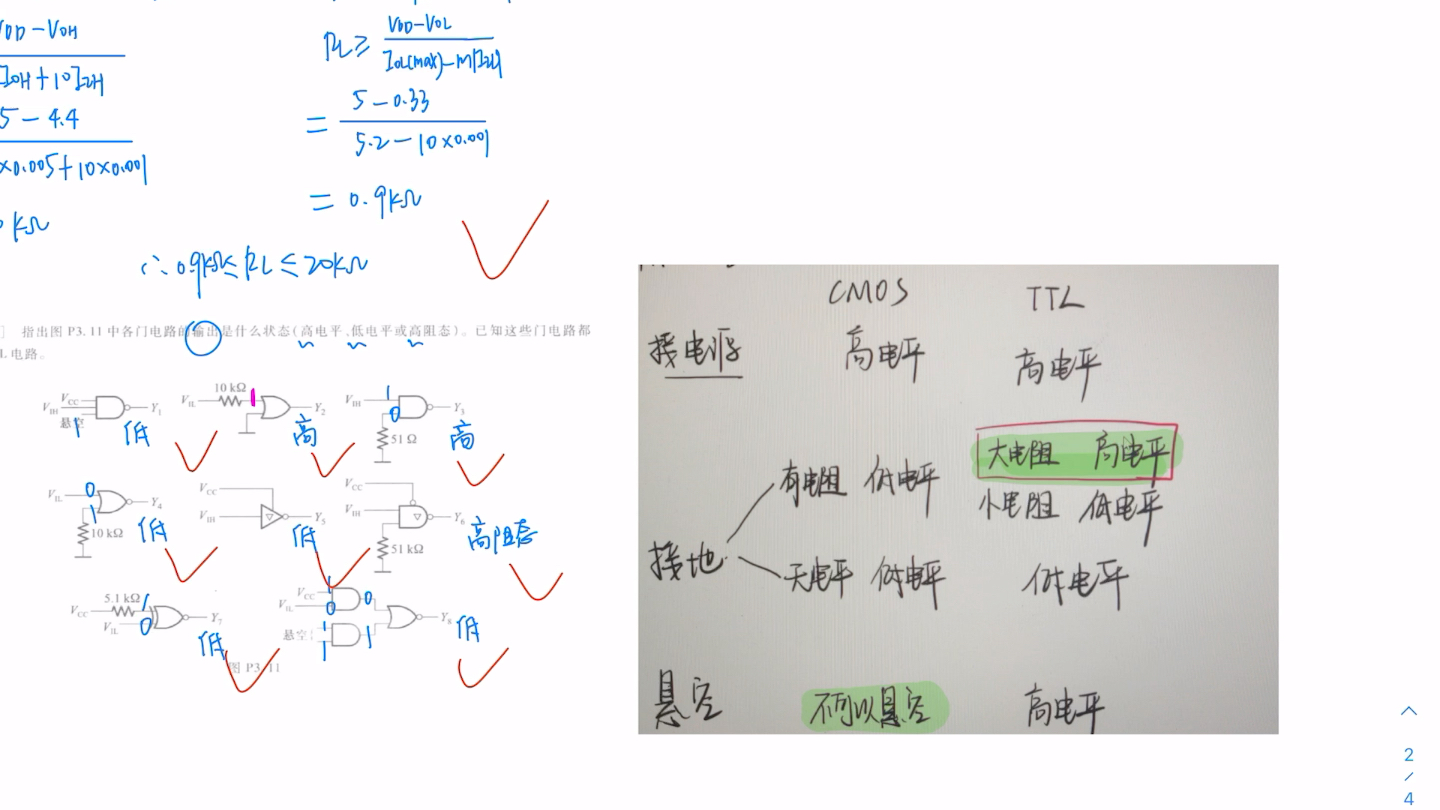 VDD-VOH
IOH+10IZH
5-4.4
×0.005+10×0.001
kΩ
RL≥ VDD-VOL
IOL(max)-m|IIL|
= 5-0.33
5.2-10×0.001
= 0.9kΩ
∴0.9kΩ≤RL≤20kΩ
] 指出图 P3.11 中各门电路的输出是什么状态(高电平、低电平或高阻态)。已知这些门电路都
L 电路。
VCC
VIH
悬空
1
Y1
低
VIL
10 kΩ
1
Y2
高
VIH
1
0
51 Ω
Y3
高
VIL
0
1
10 kΩ
Y4
低
VCC
VIH
Y5
低
VCC
VIH
51 kΩ
Y6
高阻态
5.1 kΩ
VCC
1
VIL
0
Y7
低
VCC
1
VIL
0
0
悬空
1
1
1
Y8
低
图 P3.11
CMOS TTL
接电源 高电平 高电平
大电阻 高电平
有电阻 低电平 小电阻 低电平
接地
无电平 低电平 低电平
悬空 不可以悬空 高电平
2
/
4